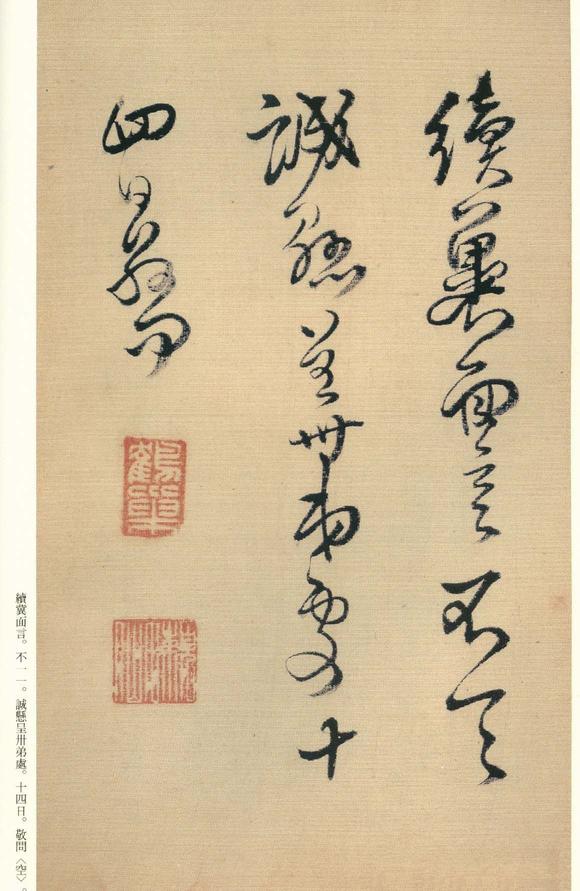 續冀面言不一一
誠懸呈卅弟處十
四日敬問
續冀面言。不一一。誠懸呈卅弟處。十四日。敬問〈空〉。